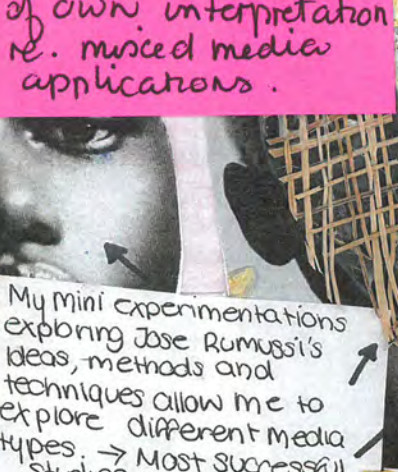 of own interpretation
re. mixed media
applications.
My mini experimentations
exploring Jose Rumussi's
ideas, methods and
techniques allow me to
explore different media
types. → Most successful
studies